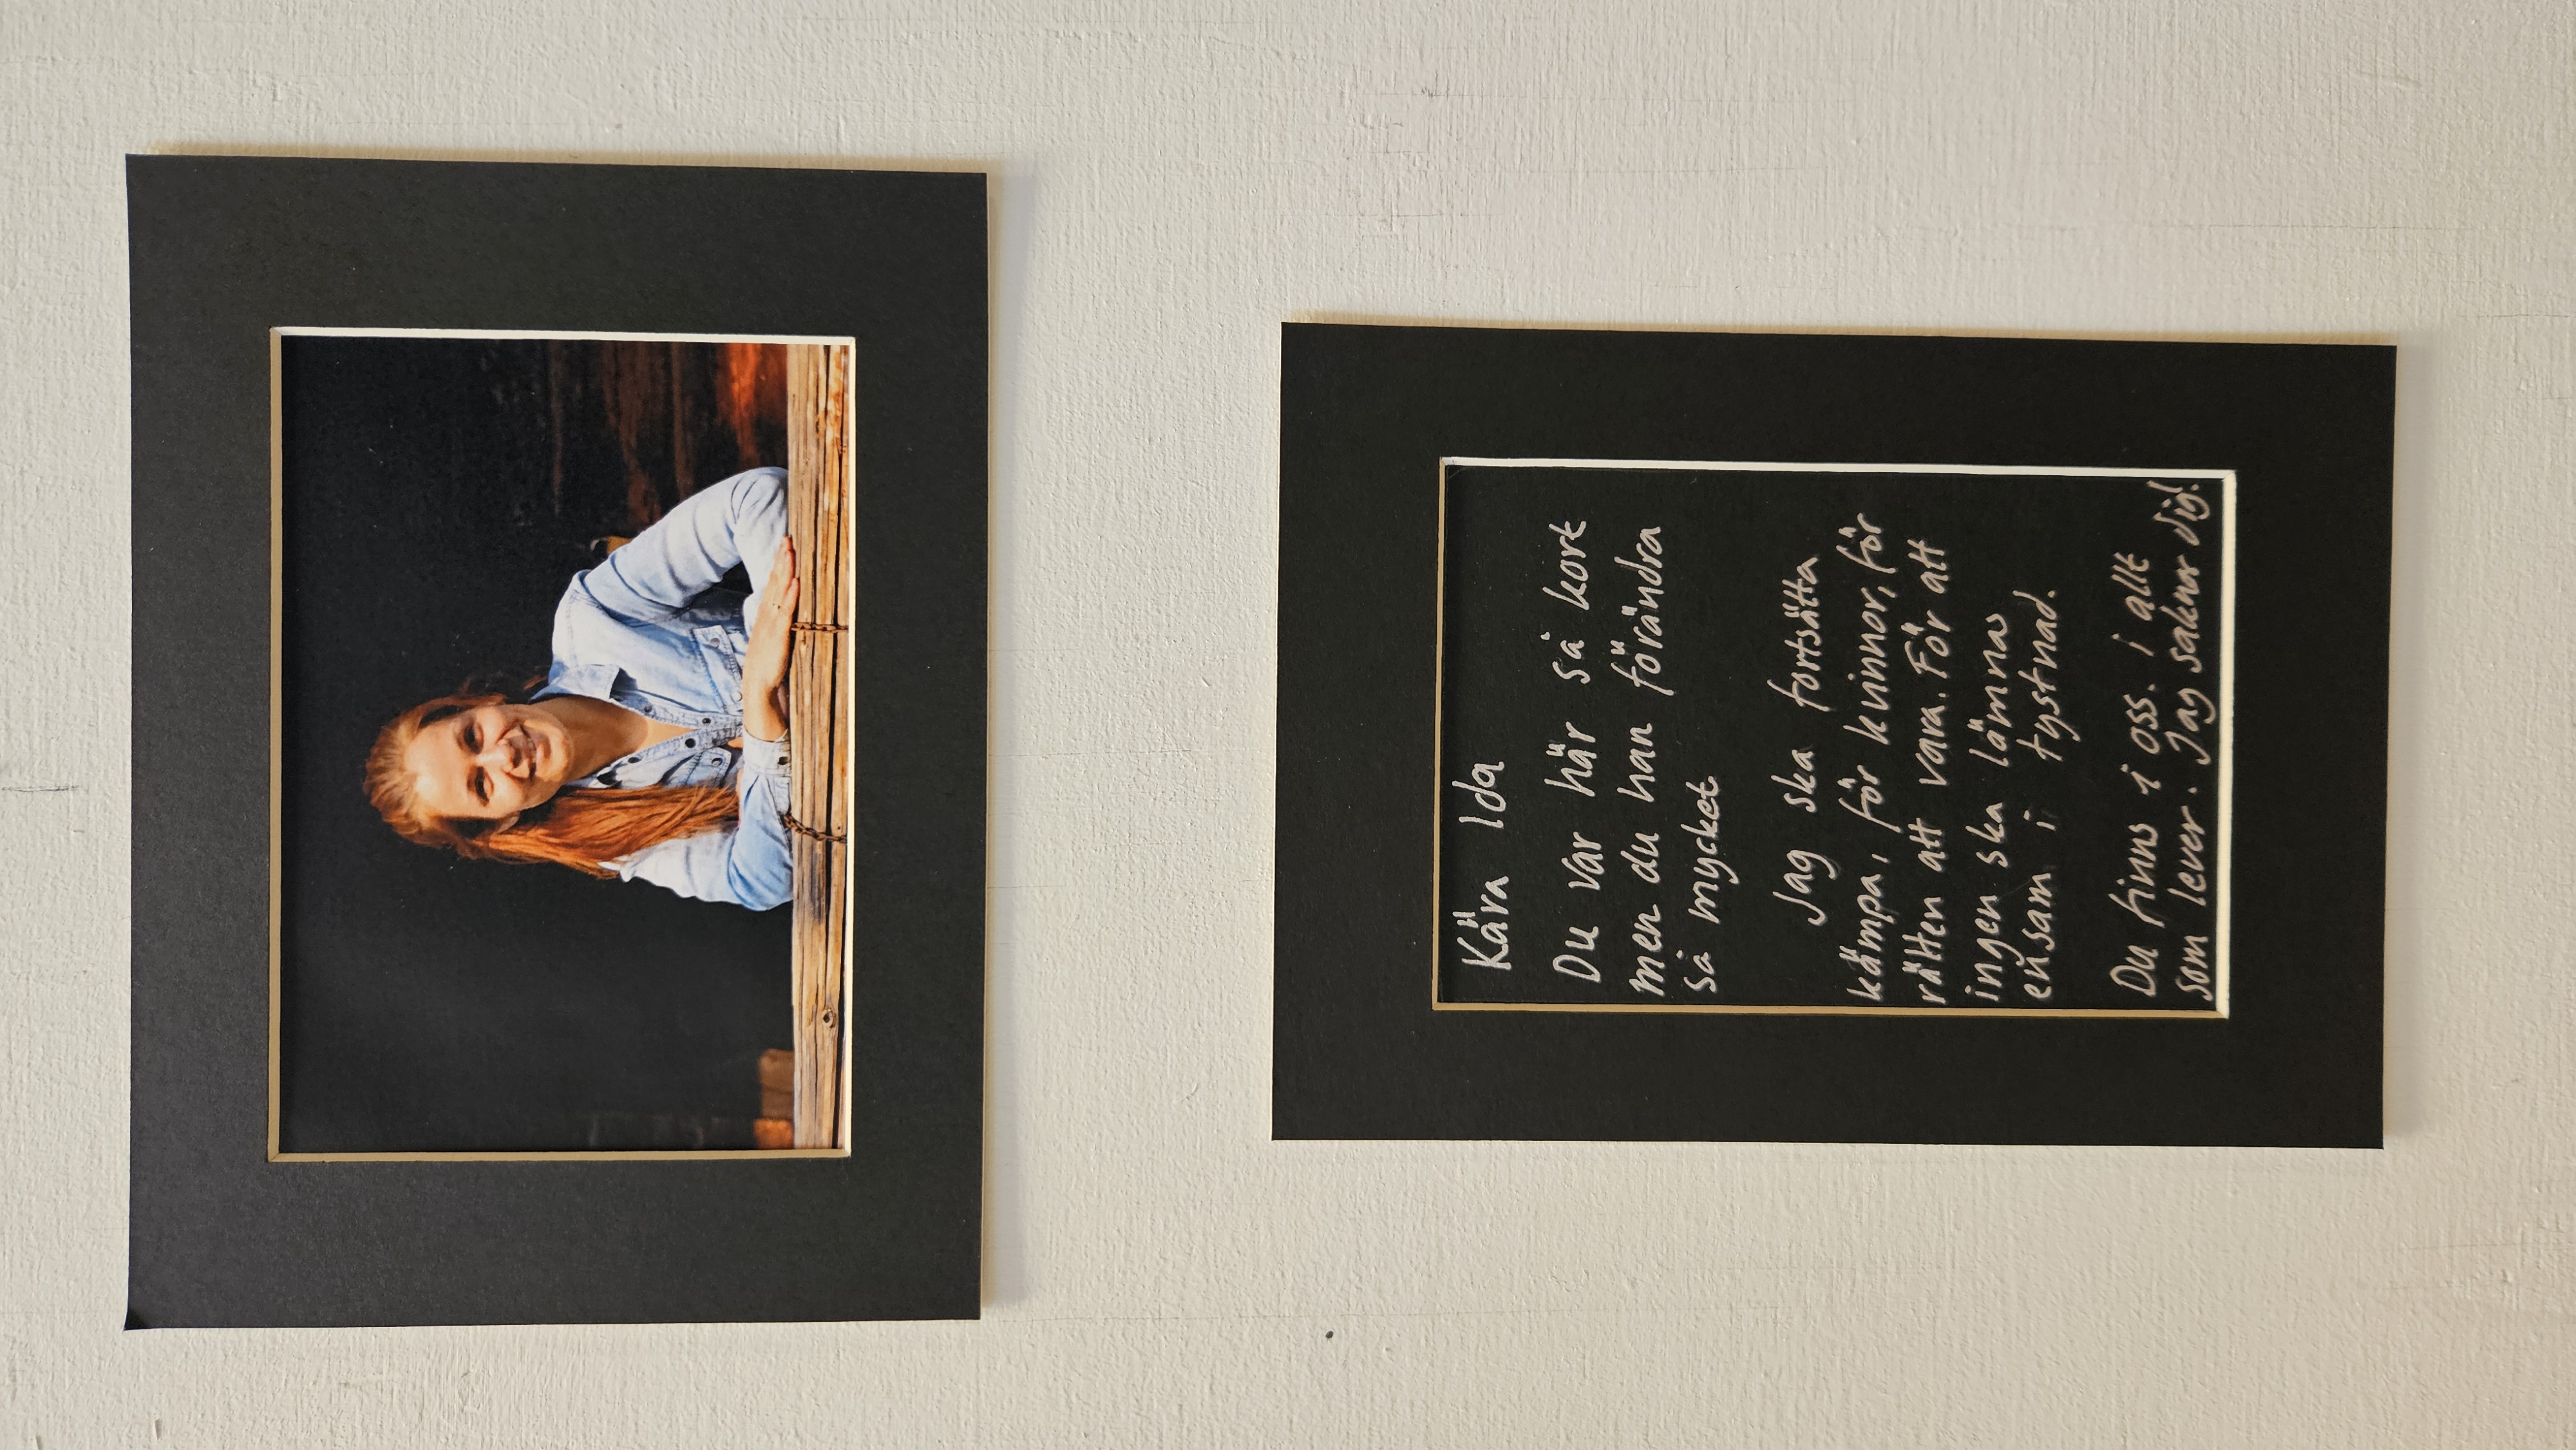 Kära Ida
Du var här så kort
men du han förändra
så mycket
Jag ska fortsätta
kämpa, för kvinnor, för
rätten att vara. För att
ingen ska lämnas
ensam i tystnad.
Du finns i oss. i allt
som lever. Jag saknar dig!